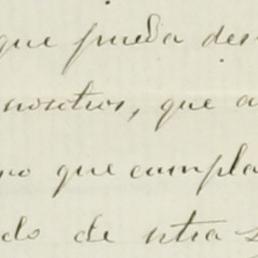 que pueda des
nosotros, que a
no que cumpla
do de ntra